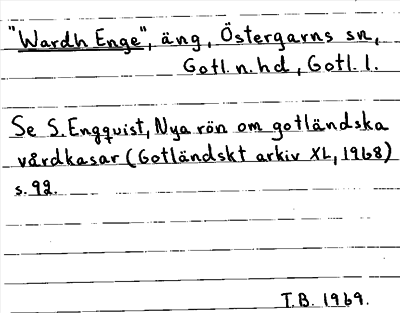 "Wardh Enge", äng, Östergarns sn,
Gotl. n. hd, Gotl. l.
Se S. Engquist, Nya rön om gotländska
vårdkasar (Gotländskt arkiv XL, 1968)
s. 92.
T.B. 1969.